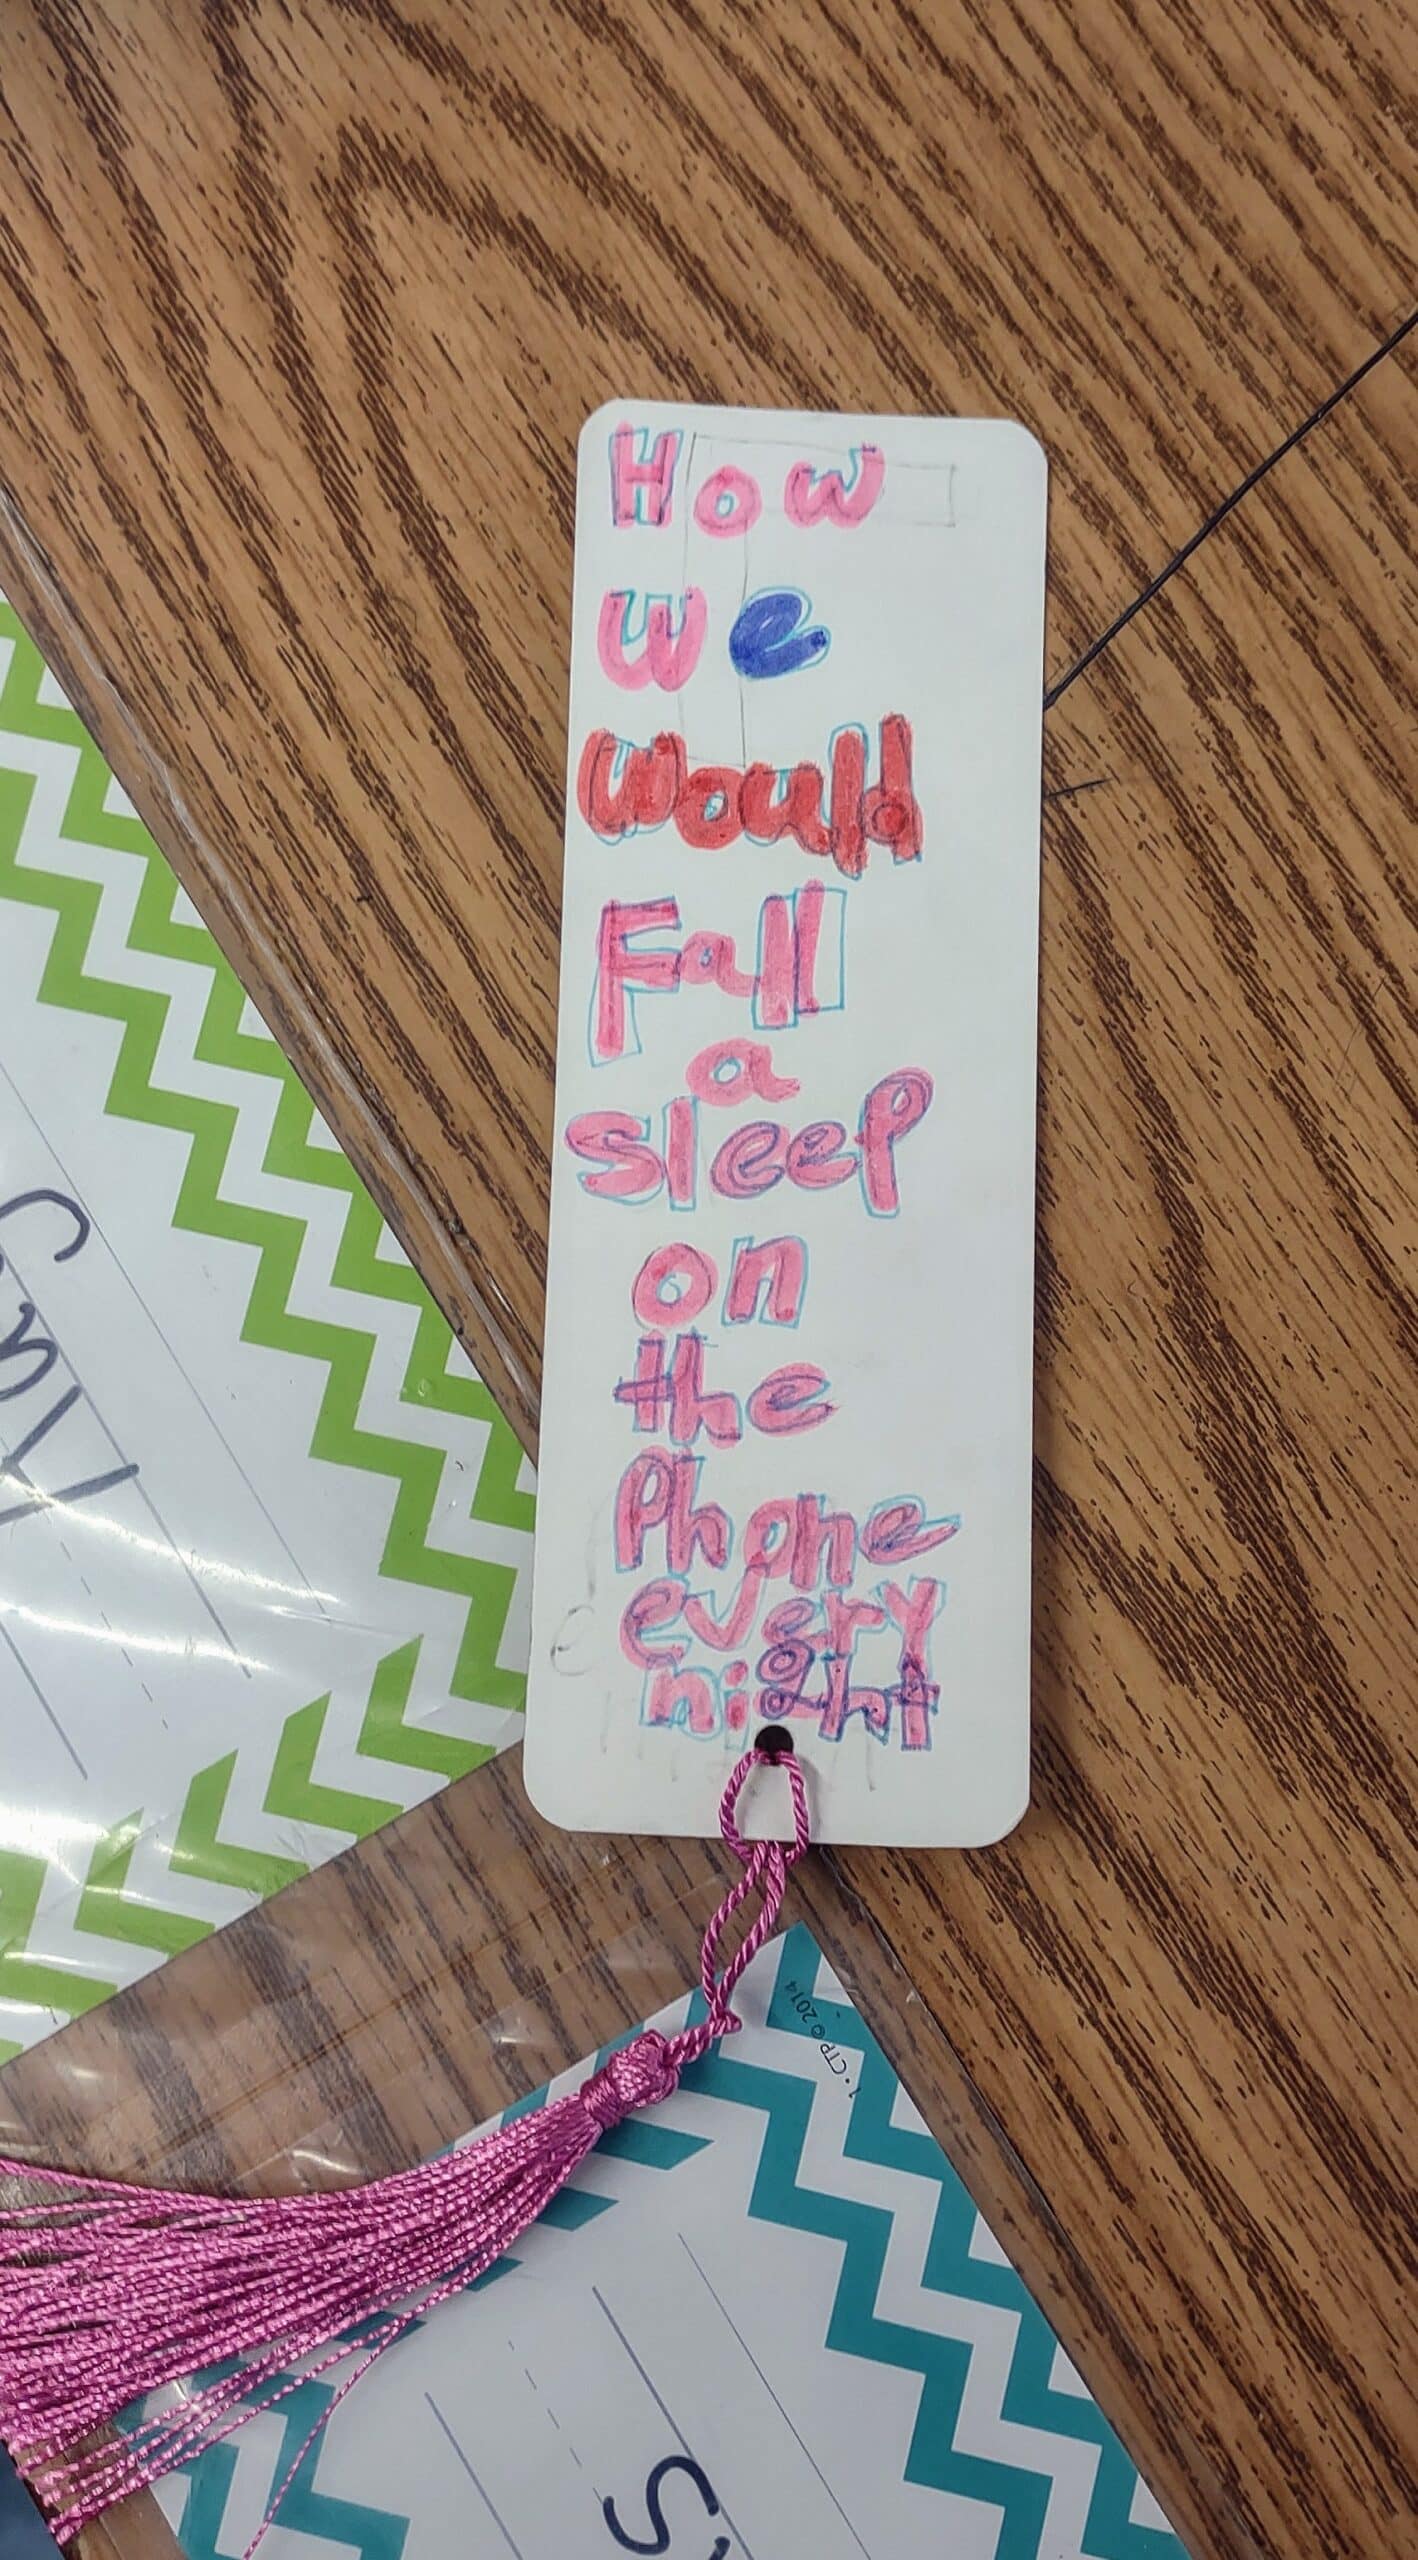 How
We
Would
Fall
a
sleep
on
the
Phone
every
night
1 • CTP © 2014